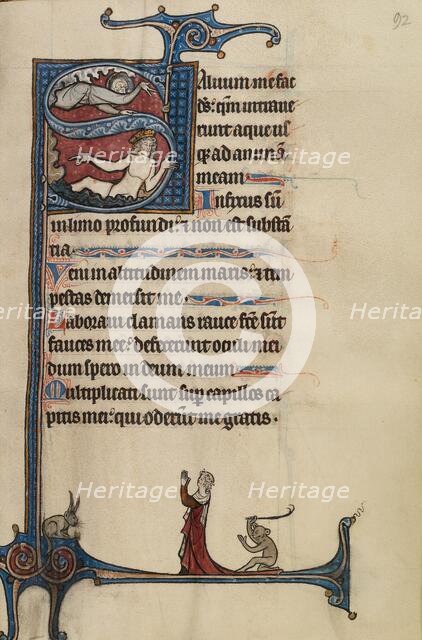 92
Saluum me fac
ds: qm intraue
runt aque us
qȝ ad animā
meam Infixus sū
in limo profundi: ⁊ non est substā
tia
Veni in altitudinem maris: ⁊ tem
pestas demersit me.
Laboraui clamans rauce fce sūt
fauces mee: defecerunt oculi mei
dum spero in deum meum
Multiplicati sunt sup capillos ca
pitis mei: qui oderūt me gratis.
Heritage Heritage
Heritage Heritage Heritage
Heritage Heritage
C